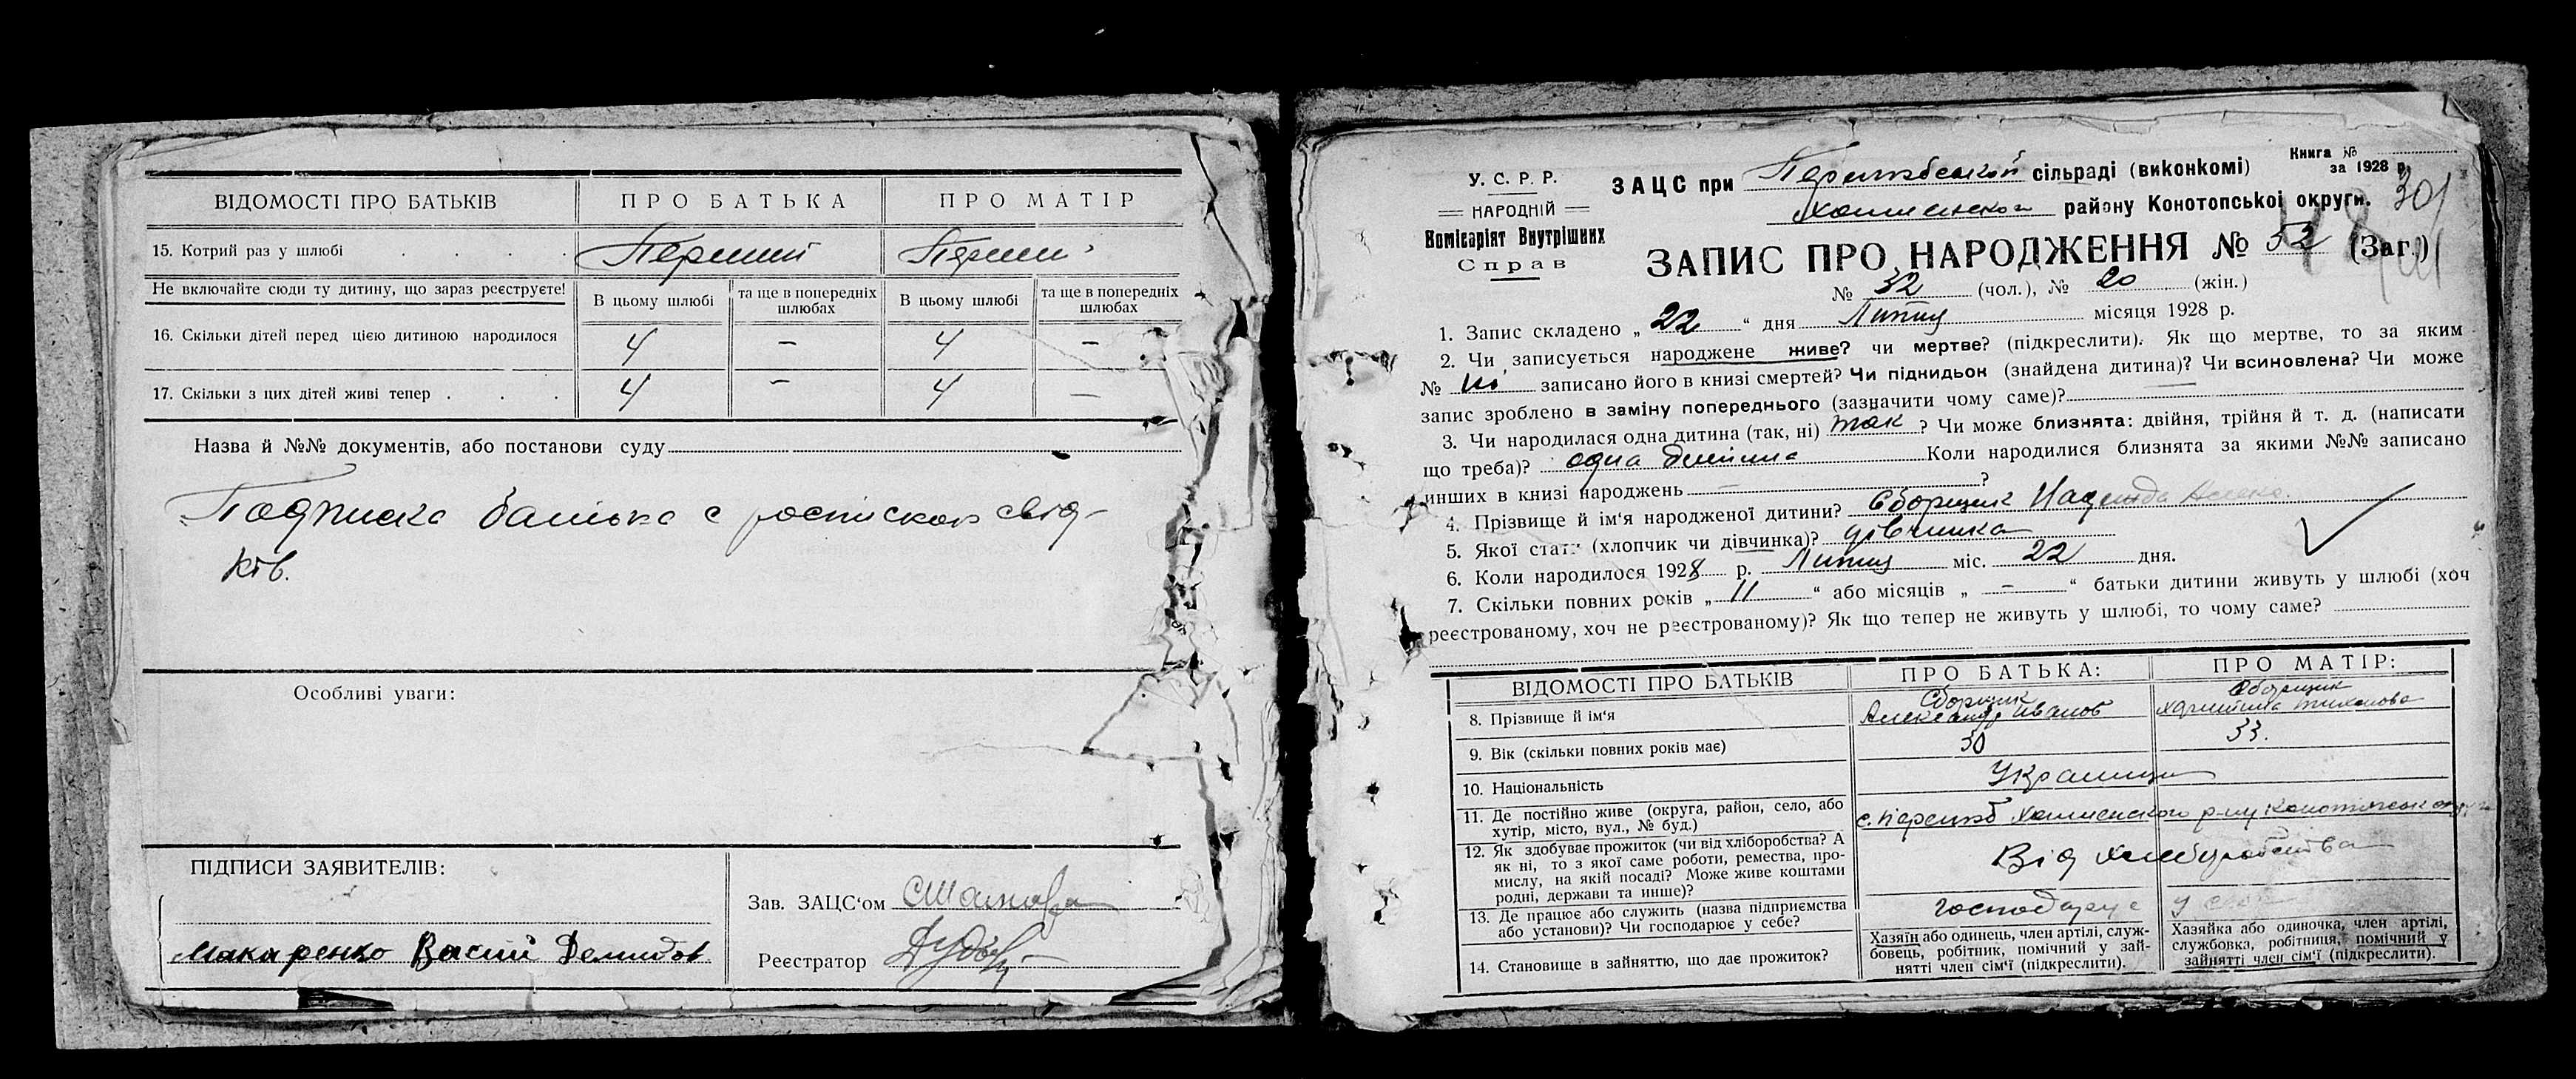 ВІДОМОСТІ ПРО БАТЬКІВ
ПРО БАТЬКА
ПРО МАТІР
15. Котрий раз у шлюбі
Перший
Перши
Не включайте сюди ту дитину, що зараз реєструєте!
В цьому шлюбі
та ще в попередніх шлюбах
В цьому шлюбі
та ще в попередніх шлюбах
16. Скільки дітей перед цією дитиною народилося
4 – 4 –
17. Скільки з цих дітей живі тепер
4 – 4 –
Назва й №№ документів, або постанови суду
Подписка батька с роспискою свід-
ків.
Особливі уваги:
ПІДПИСИ ЗАЯВИТЕЛІВ:
Макаренко Васий Демидов
Зав. ЗАЦС'ом
Реєстратор
У. С. Р. Р.
НАРОДНІЙ
Комісаріят Внутрішних
Справ
Книга №
за 1928 р.
ЗАЦС при сільраді (виконкомі)
району Конотопської округи.
301
ЗАПИС ПРО НАРОДЖЕННЯ № 52 (Заг.)
№ 32 (чол.), № 20 (жін.)
1. Запис складено „22“ дня Липня місяця 1928 р.
2. Чи записується народжене живе? чи мертве? (підкреслити). Як що мертве, то за яким
№ записано його в книзі смертей? Чи підкидьок (знайдена дитина)? Чи всиновлена? Чи може
запис зроблено в заміну попереднього (зазначити чому саме)?
3. Чи народилася одна дитина (так, ні) так ? Чи може близнята: двійня, трійня й т. д. (написати
що треба)? одна дитина Коли народилися близнята за якими №№ записано
инших в книзі народжень – ?
4. Прізвище й ім'я народженої дитини? Сборщик Надежда
5. Якої стати (хлопчик чи дівчинка)? дівчинка
6. Коли народилося 1928 р. Липня міс. 22 дня.
7. Скільки повних років „11“ або місяців „–“ батьки дитини живуть у шлюбі (хоч
реєстрованому, хоч не реєстрованому)? Як що тепер не живуть у шлюбі, то чому саме?
ВІДОМОСТІ ПРО БАТЬКІВ
ПРО БАТЬКА:
ПРО МАТІР:
8. Прізвище й ім'я
Сборщик
Александр Иванов
Сборщик
9. Вік (скільки повних років має)
30
33.
10. Національність
Украинци
11. Де постійно живе (округа, район, село, або
хутір, місто, вул., № буд.)
12. Як здобуває прожиток (чи від хліборобства? А
як ні, то з якої саме роботи, ремества, про-
мислу, на якій посаді? Може живе коштами
родні, держави та инше)?
Від хлеборобства
13. Де працює або служить (назва підприємства
або установи)? Чи господарює у себе?
господарує у
14. Становище в зайняттю, що дає прожиток?
Хазяїн або одинець, член артілі, служ-
бовець, робітник, помічний у зай-
нятті член сім'ї (підкреслити).
Хазяйка або одиночка, член артілі,
службовка, робітниця, помічний у
зайнятті член сім'ї (підкреслити).